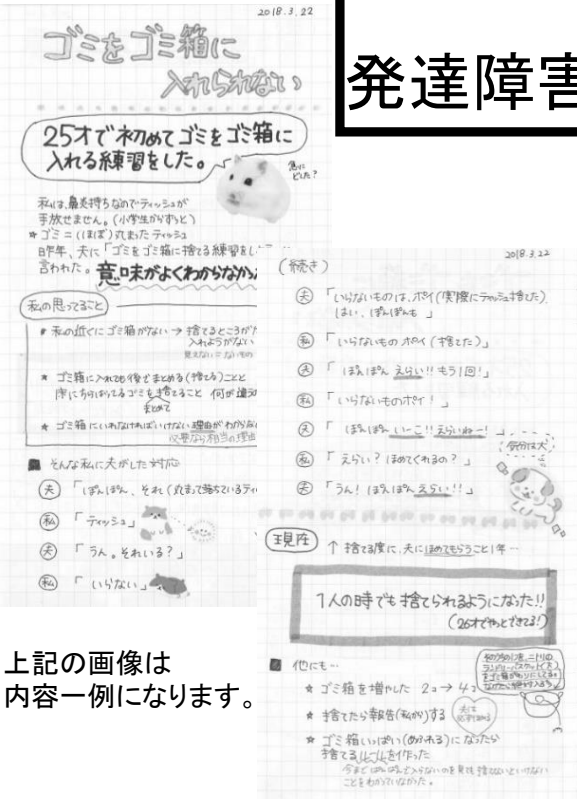 2018.3.22
ゴミをゴミ箱に
入れられない
発達障害
25才で初めてゴミをゴミ箱に
入れる練習をした。
急に
どした？
私は、鼻炎持ちなのでティッシュが
手放せません。(小学生からずっと)
★ゴミ=(ほぼ)丸まったティッシュ
昨年、夫に「ゴミをゴミ箱に捨てる練習をし
言われた。意味がよくわからなか
私の思ってること
★ 私の近くにゴミ箱がない → 捨てるところが
入れようがない
見えない=ないもの
★ ゴミ箱に入れても後でまとめる(捨てる)ことと
床にちらばってるゴミを捨てること 何が違う
まとめて
★ ゴミ箱にいれなければいけない理由がわからな
必要なら相当の理由
■ そんな私に夫がした対応
夫 「ぽんぽん、それ(丸まって落ちているティ
私 「ティッシュ」
夫 「うん。それいる？」
私 「いらない」
2018.3.22
(続き)
夫 「いらないものは、ポイ(実際にティッシュ捨てた)
はい、ぽんぽんも 」
私 「いらないもの ポイ(捨てた)」
夫 「ぽんぽん えらい!! もう1回!」
私 「いらないものポイ! 」
夫 「ぽんぽん いーこ!! えらいねー! 」
私 「えらい？ほめてくれるの？ 」
夫 「うん! ぽんぽんえらい!! 」
気分は犬
現在 ↑ 捨てる度に、夫にほめてもらうこと1年…
1人の時でも捨てられるようになった!!
(26才でやっとできてる!)
■ 他にも…
★ ゴミ箱を増やした 2コ→4コ
★ 捨てたら報告(私から)する
夫は
必ずほめる
★ ゴミ箱いっぱい(あふれる)になったら
捨てるルールを作った
今までぱんぱんで入らないのを見ても捨てないといけない
ことをわかっていなかった。
上記の画像は
内容一例になります。